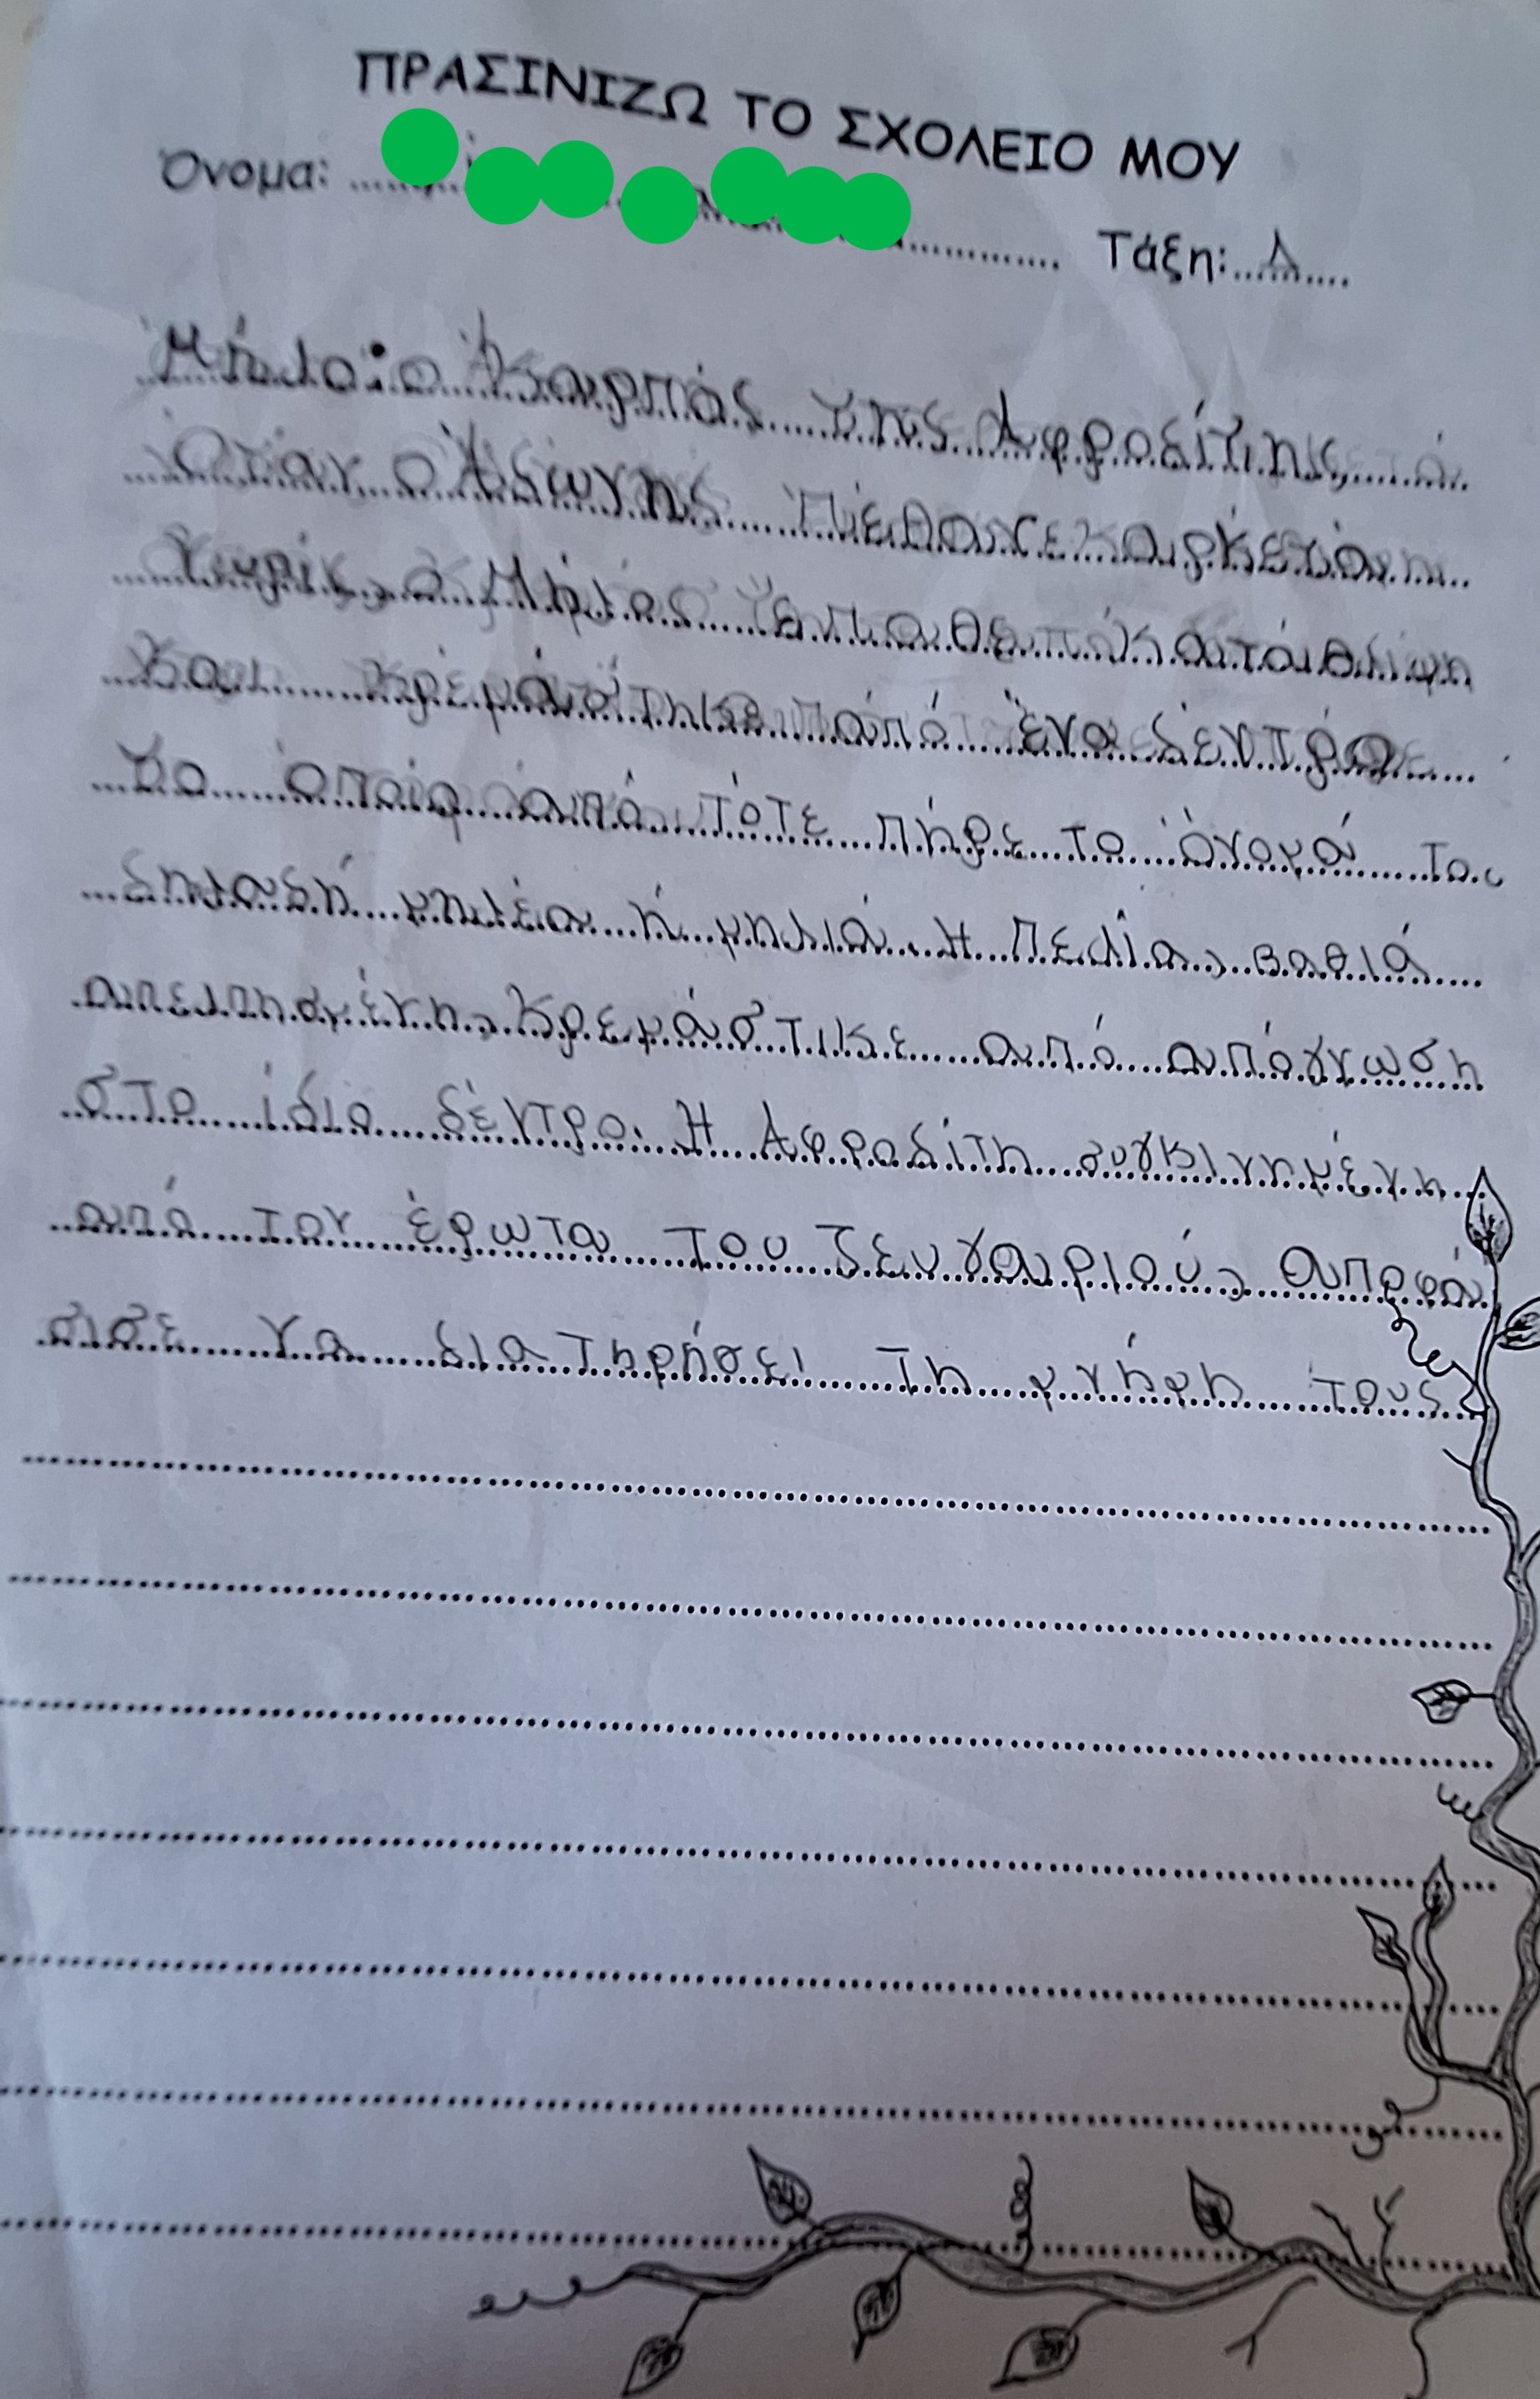 ΠΡΑΣΙΝΙΖΩ ΤΟ ΣΧΟΛΕΙΟ ΜΟΥ
Όνομα: Τάξη: Δ
Μήλο: ο Καρπός της Αφροδίτης
Όταν ο Άδωνης Πέθανε
Χωρίς, ο Μήλος έπαθε κατάθλιψη
και κρεμάστηκε από ένα δέντρο
το οποίο από τότε πήρε το όνομά του
δηλαδή μηλέα ή μηλιά. Η Πελία, βαθιά
απελπησμένη, κρεμάστικε από απόγνωση
στο ίδιο δέντρο. Η Αφροδίτη συγκινημένη
από τον έρωτα του ζευγαριού, αποφά
σισε να διατηρήσει τη μνήμη τους